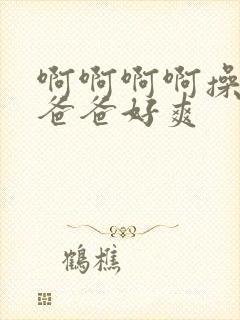 啊啊啊啊操
爸爸好爽
鹤樵